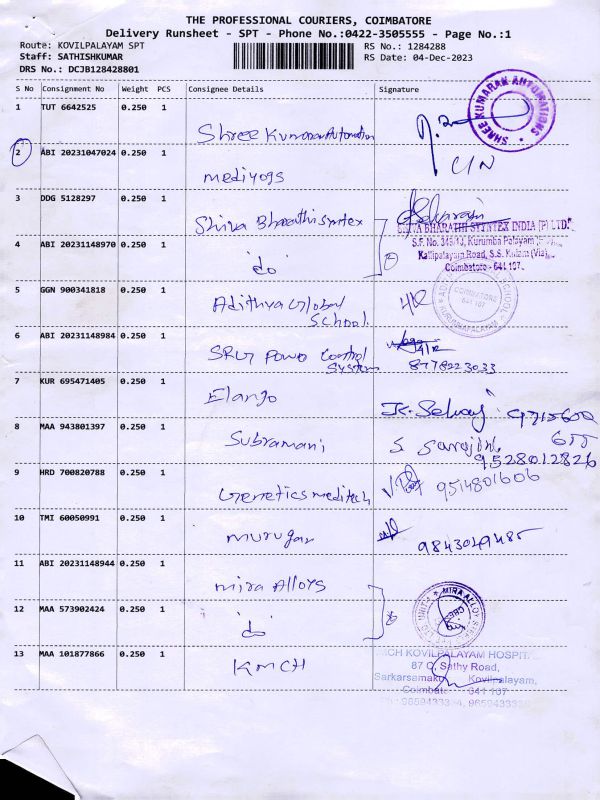 THE PROFESSIONAL COURIERS, COIMBATORE
Delivery Runsheet - SPT - Phone No.:0422-3505555 - Page No.:1
Route: KOVILPALAYAM SPT
RS No.: 1284288
Staff: SATHISHKUMAR
RS Date: 04-Dec-2023
DRS No.: DCJB128428801
S No Consignment No Weight PCS Consignee Details Signature
1 TUT 6642525 0.250 1 Shree Kumaran Automation
SHREE KUMARAN AUTOMATIONS
2 ABI 20231047024 0.250 1 mediyogs
3 DDG 5128297 0.250 1 Shiva Bharathi syntex
SHIVA BHARATHI SYNTEX INDIA (P) LTD.
S.F. No. Kurumba Palayam
Kallipalayam Road, S.S. Kulam (Via),
Coimbatore - 641 107.
4 ABI 20231148970 0.250 1 do
5 GGN 900341818 0.250 1 Adithya Global School
COIMBATORE
641 107
KURUMBAPALAYAM
6 ABI 20231148984 0.250 1 SRG Powo Control System
8778223033
7 KUR 695471405 0.250 1 Elango
K. Selvaj 9715600
655
8 MAA 943801397 0.250 1 Subramani
9528012826
9 HRD 700820788 0.250 1 Genetics meditech
9514801606
10 TMI 60050991 0.250 1 murugan
9843049485
11 ABI 20231148944 0.250 1 mira Alloys
MIRA ALLOY
12 MAA 573902424 0.250 1 do
13 MAA 101877866 0.250 1 KMCH
KOVILPALAYAM HOSPIT
87 Sathy Road,
Kovilpalayam,
Coimbat 641 107